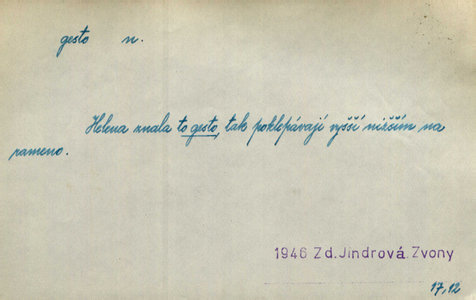 gesto n.
Helena znala to gesto, tak poklepávají vyšší nižším na
rameno.
1946 Zd. Jindrová. Zvony
17,12